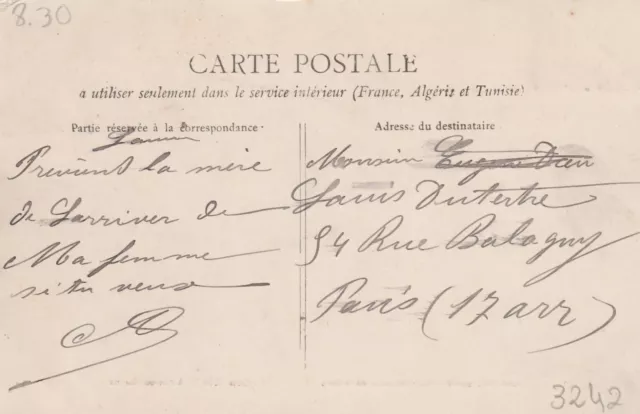 8.30
CARTE POSTALE
a utiliser seulement dans le service intérieur (France, Algérie et Tunisie)
Partie réservée à la correspondance
Prévient la mère
de Larriver de
Ma femme
si tu veux
Adresse du destinataire
Monsieur
Louis Dutertre
54 Rue Balagny
Paris (17 arr)
3242